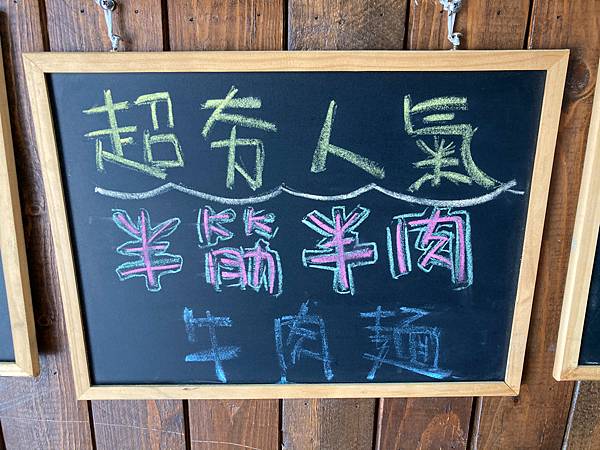 超夯人氣
半筋半肉
牛肉麵